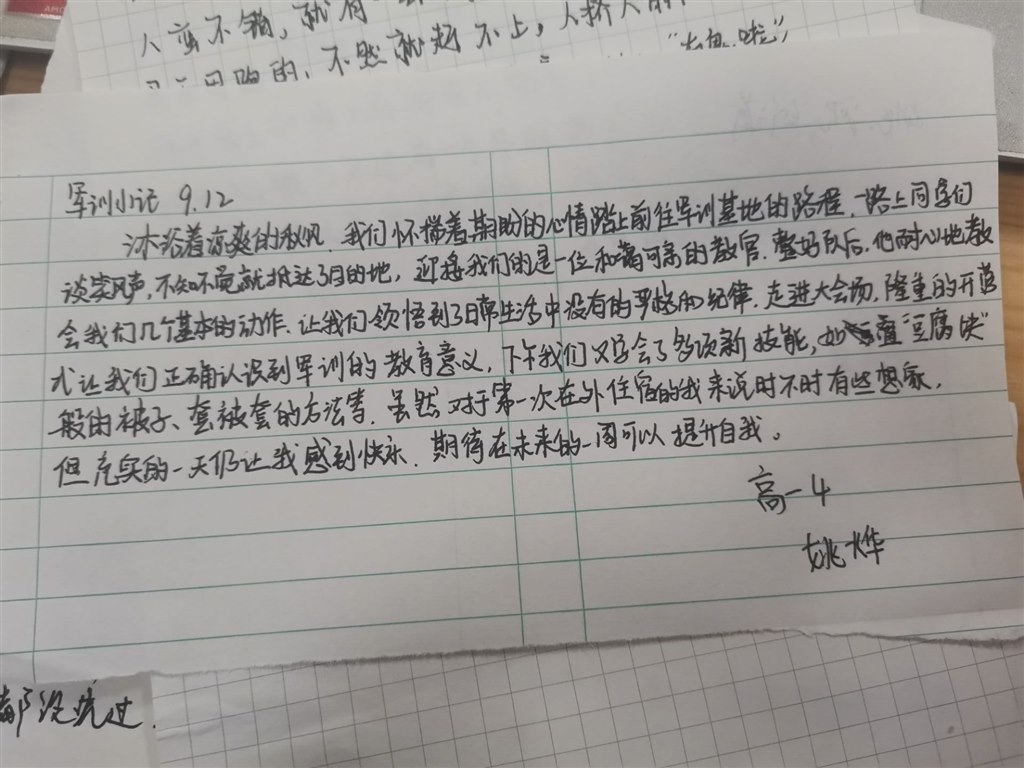 人蛮不错,就有
的,不然就赶不上,人挤人的
军训小记 9.12
沐浴着凉爽的秋风,我们怀揣着期盼的心情踏上前往军训基地的路程,一路上同学们
谈笑风声,不知不觉就抵达了目的地,迎接我们的是一位和蔼可亲的教官.整好队后,他耐心地教
会我们几个基本的动作.让我们领悟到了日常生活中没有的严格和纪律.走进大会场,隆重的开营
式让我们正确认识到军训的教育意义,下午我们又学会了多项新技能,如叠"豆腐块"
般的被子、套被套的方法等.虽然对于第一次在外住宿的我来说时不时有些想家,
但充实的一天仍让我感到快乐.期待在未来的一周可以提升自我。
高一4
姚烨
都没坑过.